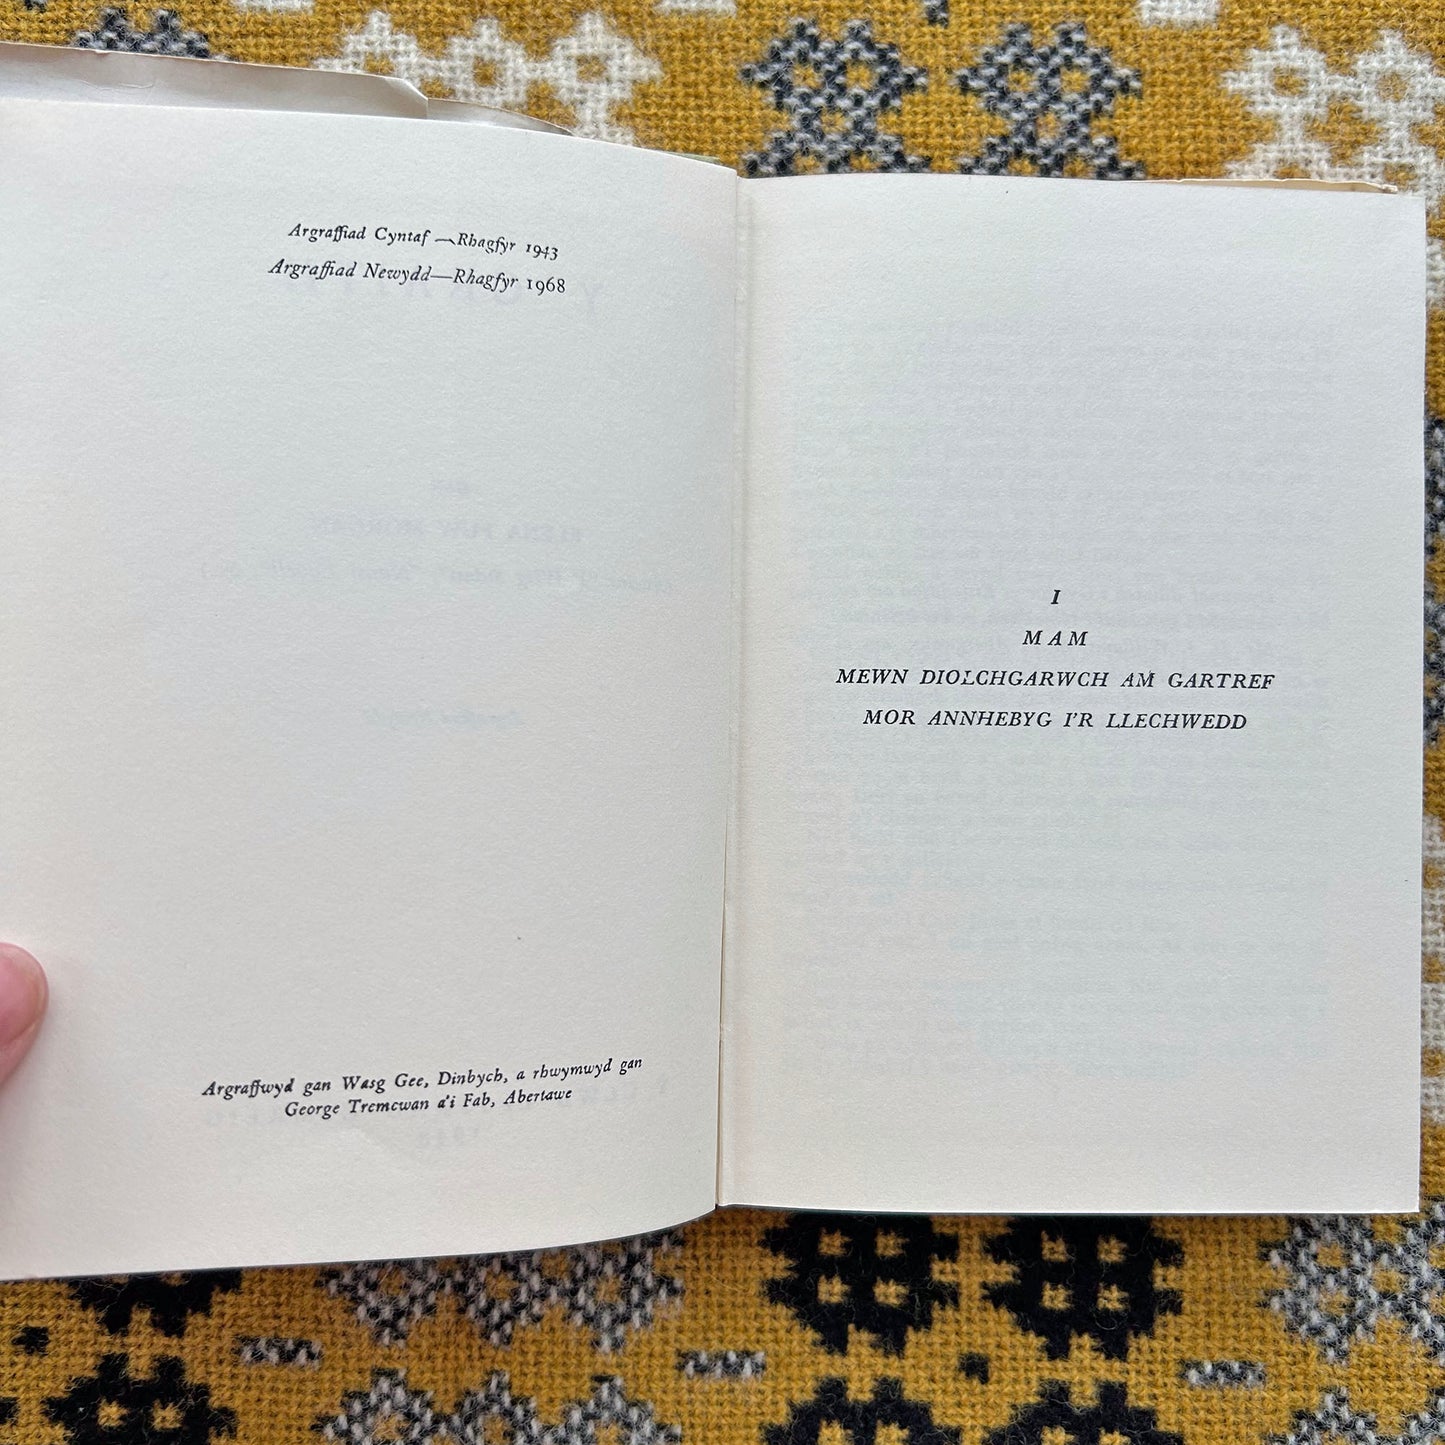 Argraffiad Cyntaf — Rhagfyr 1943
Argraffiad Newydd—Rhagfyr 1968
Argraffwyd gan Wasg Gee, Dinbych, a rhwymwyd gan
George Tremewan a'i Fab, Abertawe
I
MAM
MEWN DIOLCHGARWCH AM GARTREF
MOR ANNHEBYG I'R LLECHWEDD